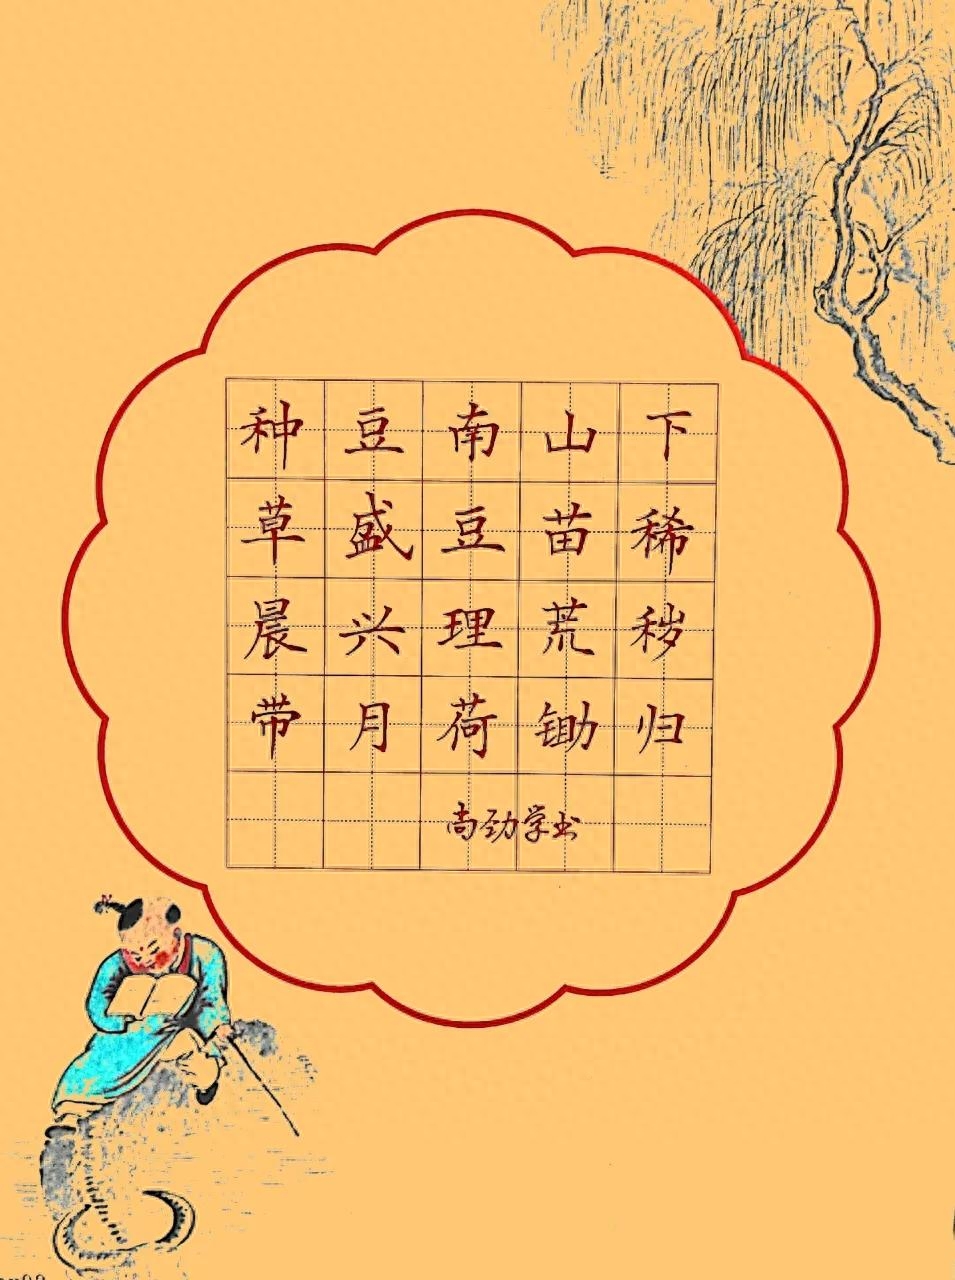 种豆南山下
草盛豆苗稀
晨兴理荒秽
带月荷锄归
尚劲学书